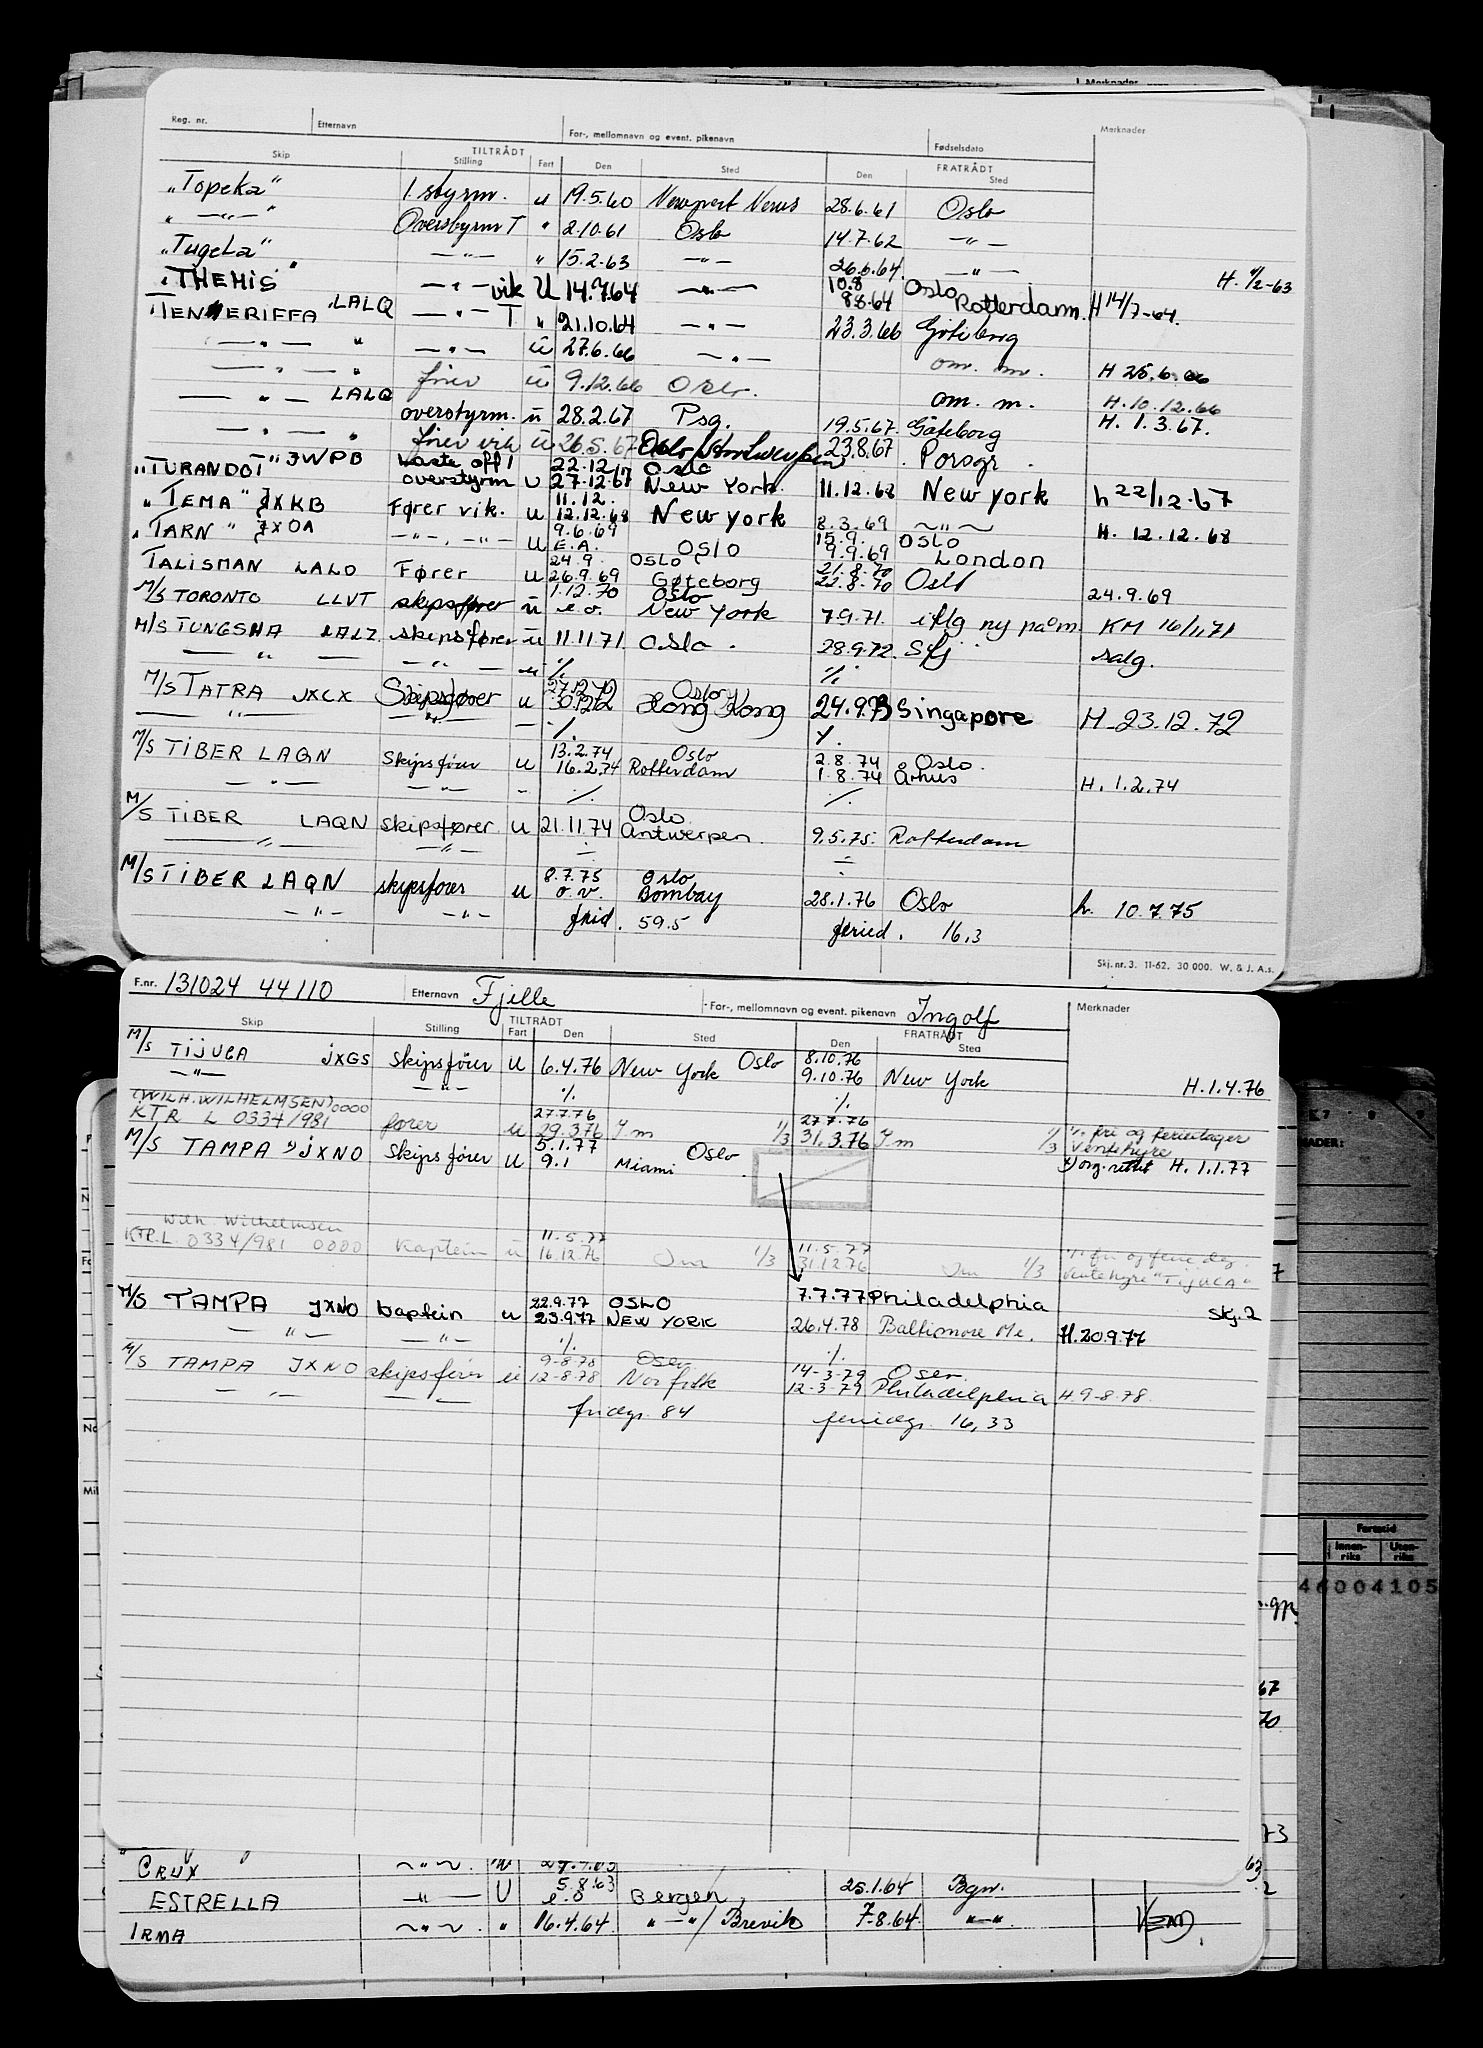 Merknader
Reg. nr. Etternavn For-, mellomnavn og event. pikenavn Fødselsdato Merknader
TILTRÅDT FRATRÅDT
Skip Stilling Fart Den Sted Den Sted
"Topeka" 1. styrm. u 19.5.60 Newport News 28.6.61 Oslo
" —"— " Overstyrm T " 2.10.61 Oslo 14.7.62 —"—
"Tugela" —"— " 15.2.63 —"— 26.6.64. —"— H. 4/2-63
"THEMIS" —"— vik U 14.7.64 —"— 10.8 Oslo
8.8.64 Rotterdam. H 14/7-64.
TENERIFFA LALQ —"— T " 21.10.64 —"— 23.3.66 Göteborg
—"— " —"— ü 27.6.66 —"— om. m. H 25.6.66
—"— " fører ü 9.12.66 Oslo. om. m. H. 10.12.66
—"— LALQ overstyrm. ü 28.2.67 Psg. 19.5.67. Göteborg H. 1.3.67.
—"— " fører vik ü 26.5.67 Oslo/Antwerpen 23.8.67 Porsgr.
"TURANDOT" JWPB vaste off! 22.12 Oslo
overstyrm u 27.12.67 New York. 11.12.68 New york h 22/12.67
"TEMA" JXKB Fører vik. u 11.12.
12.12.68 New york 8.3.69 ~"~ H. 12.12.68
"TARN" JXOA —"—.—"— U 9.6.69
E.A. OSLO 15.9. OSLO
9.9.69 London
TALISMAN LALO Fører u 24.9. OSLO
26.9.69 Gøteborg 21.8.70
22.8.70 Oslo 24.9.69
M/S TORONTO LLVT skipsfører ü 1.12.70 Oslo
e.o. New York 7.9.71. iflg ny påm KM 16/11.71
M/S TUNGSHA LALZ skipsfører ü 11.11.71. Oslo. 28.9.72. Sfj salg.
—"— —"— —" ./. ./.
M/S TATRA JXCX Skipsfører u 27.12.72 Oslo
30.12.72 Hong Kong 24.9.73 Singapore H. 23.12.72
—"— —"— — ./. ./.
M/S TIBER LAQN Skipsfører u 13.2.74 Oslo
16.2.74 Rotterdam 2.8.74 Oslo.
1.8.74 Århus H. 1.2.74
—"— —"— - ./. ./.
M/S TIBER LAQN skipsfører u 21.11.74 Oslo
Antwerpen. 9.5.75. Rotterdam
—"— —"— ÷ ÷
M/S TIBER LAQN skipsfører u 8.7.75 Oslo
o.v. Bombay 28.1.76 Oslo h. 10.7.75
—"— —"— frid. 59.5 feried. 16,3
Skj. nr. 3. 11-62. 30 000. W. & J. A.s.
F.nr. 131024 44110 Etternavn Fjille For-, mellomnavn og event. pikenavn Ingolf Merknader
TILTRÅDT FRATRÅDT
Skip Stilling Fart Den Sted Den Sted
M/S TIJUCA JXGS Skipsfører u 6.4.76 New York Oslo 8.10.76
9.10.76 New York H. 1.4.76
—"— —"— ./. ./.
(WILH. WILHELMSEN) 0000 27.7.76 27.7.76
KTR L 0334/981 fører u 29.3.76 Im 1/3 31.3.76 Im 1/3 1/1 fri og feriedager
Ventehyre
M/S TAMPA x) JXNO Skipsfører u 5.1.77 Oslo
9.1 Miami x) org. rettet H. 1.1.77
Wilh. Wilhelmsen 11.5.77 11.5.77
KTR.L. 0334/981 0000 kaptein ü 16.12.76 Im 1/3 31.12.76 Im 1/3 1/1 fri og ferie dg.
Ventehyre "TIJUCA"
7.7.77 Philadelphia
M/S TAMPA JXNO kaptein u 22.9.77 OSLO
23.9.77 NEW YORK 26.4.78 Baltimore Me. H. 20.9.77 Skj. 2
—"— —"— ./. ./.
M/S TAMPA JXNO skipsfører ü 9-8-78 Oslo
12-8-78 Norfolk 14-3-79 Oslo
12-3-79 Philadelphia H. 9-8-78.
—"— —"— fridgr. 84 feriedgr. 16,33
Fartstid
Innen-riks Uten-riks
46004105
67
70
73
63
"CRUX" ~"~. "
ESTRELLA —"— U 5.8.63
e.o Bergen, 25.1.64 Bgn.
IRMA ~"~. " 16.4.64. "—"/Brevik 7-8.64. "—"